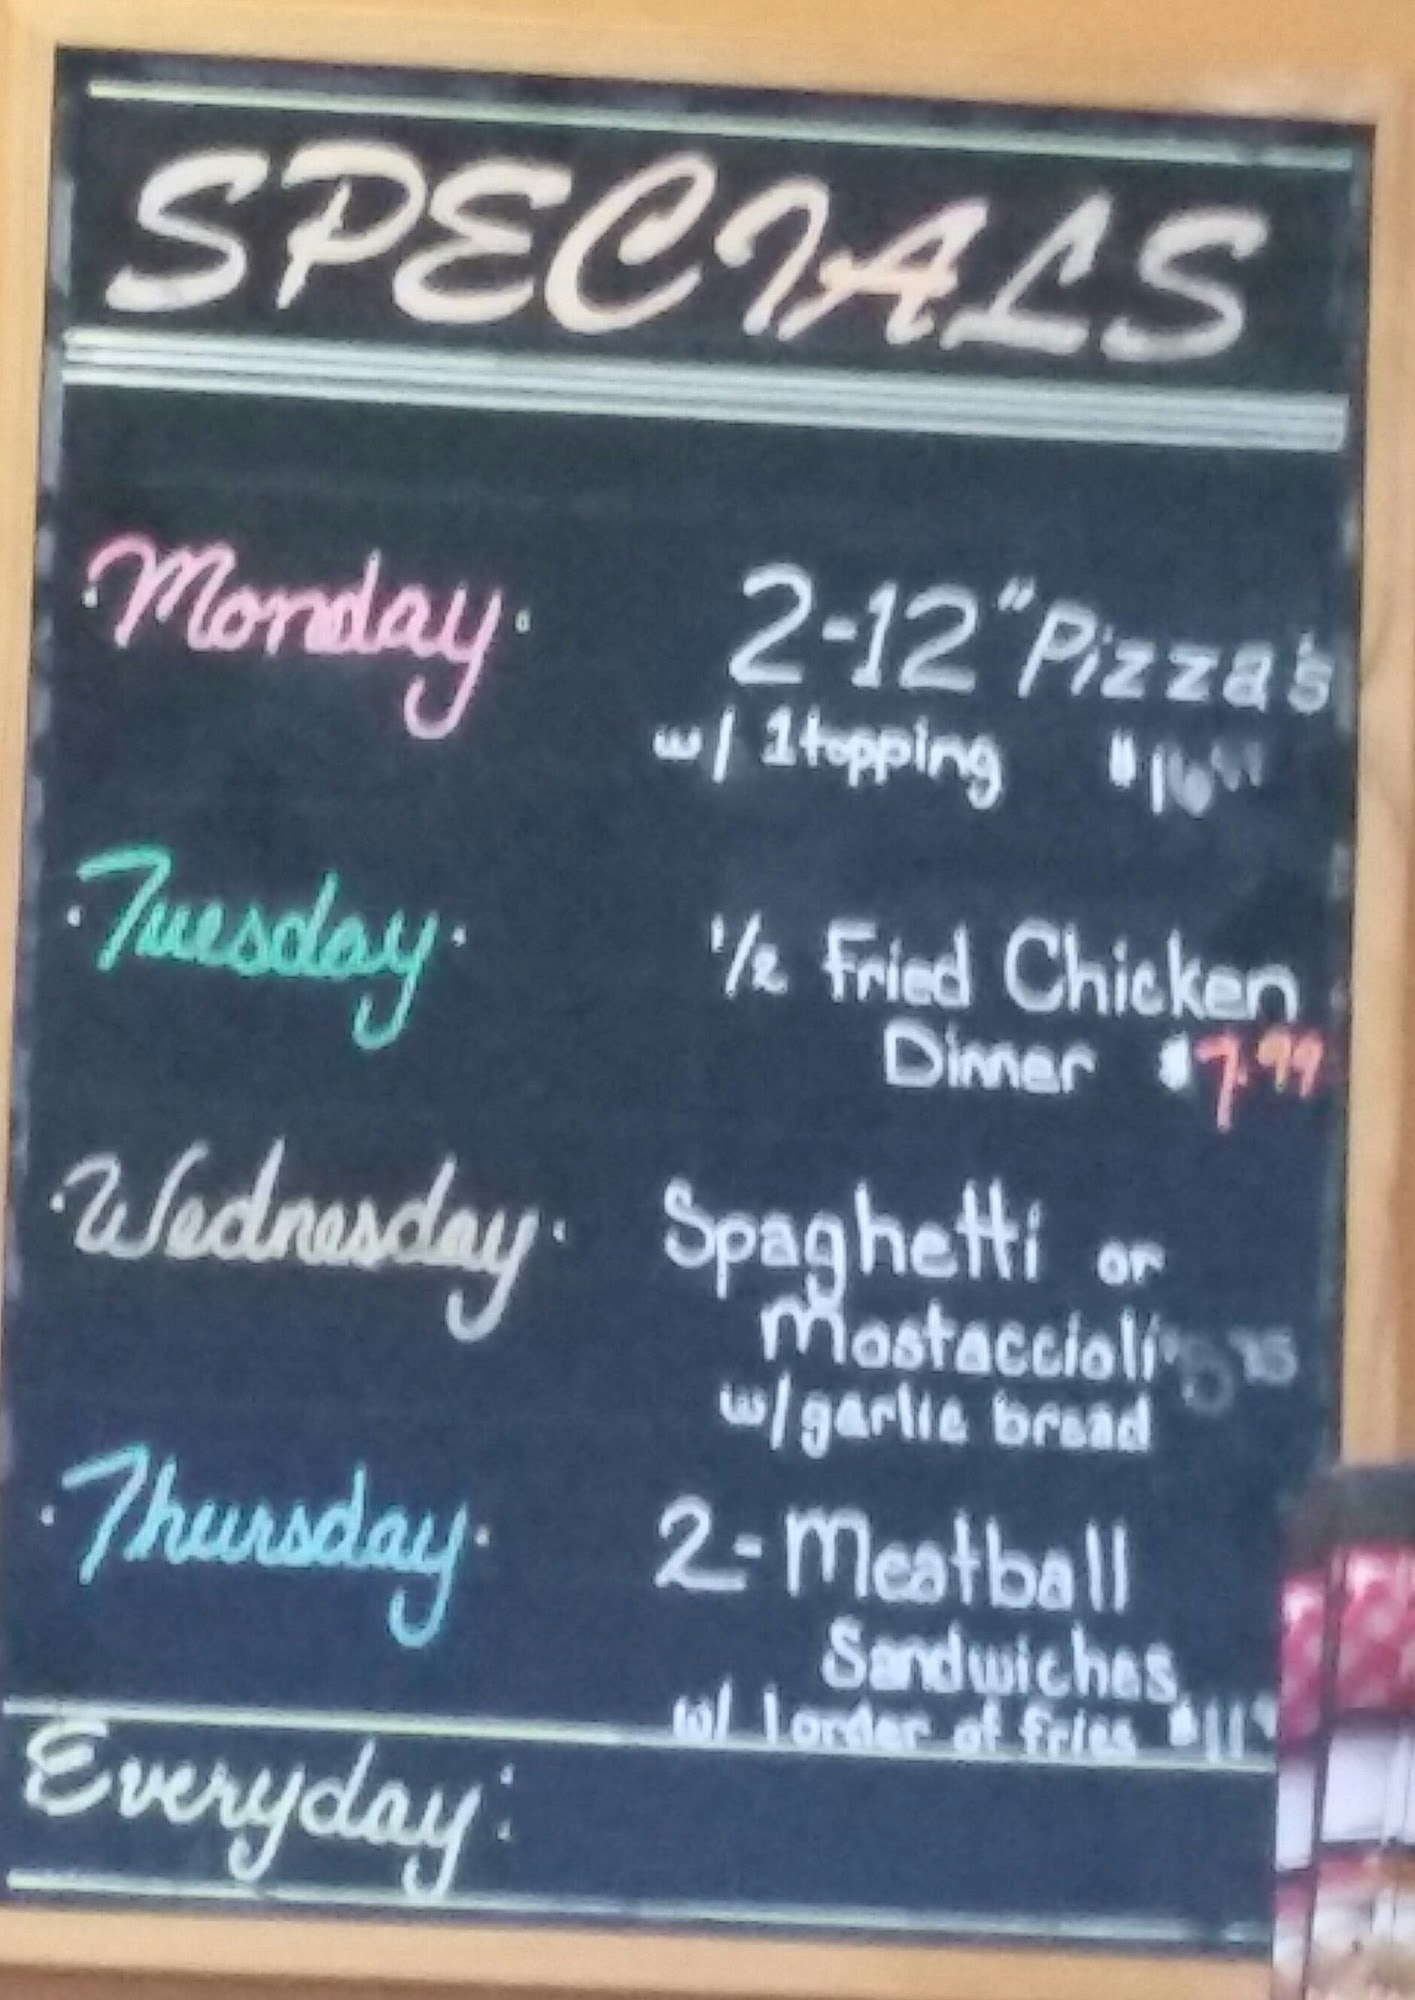 SPECIALS
Monday 2-12" Pizza's
w/ 1 topping
Tuesday 1/2 Fried Chicken
Dinner $7.99
Wednesday Spaghetti or
Mostaccioli
w/ garlic bread
Thursday 2-Meatball
Sandwiches
w/ 1 order of fries
Everyday: